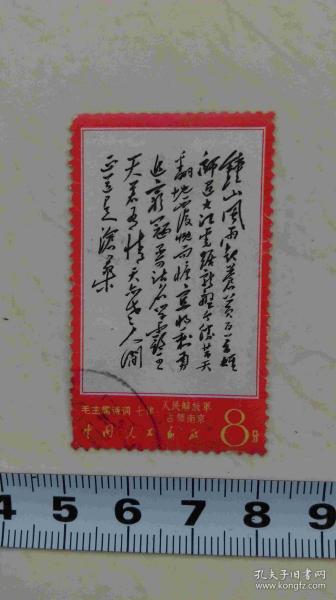 鍾山風雨起蒼黃百万雄
師过大江虎踞龍盤今勝昔天
翻地覆慨而慷宜將剩勇
追窮寇不可沽名學霸王
天若有情天亦老人间
正道是滄桑
毛主席诗词 七律 人民解放军
占领南京
中国人民邮政 8分
4 5 6 7 8 9
孔夫子旧书网